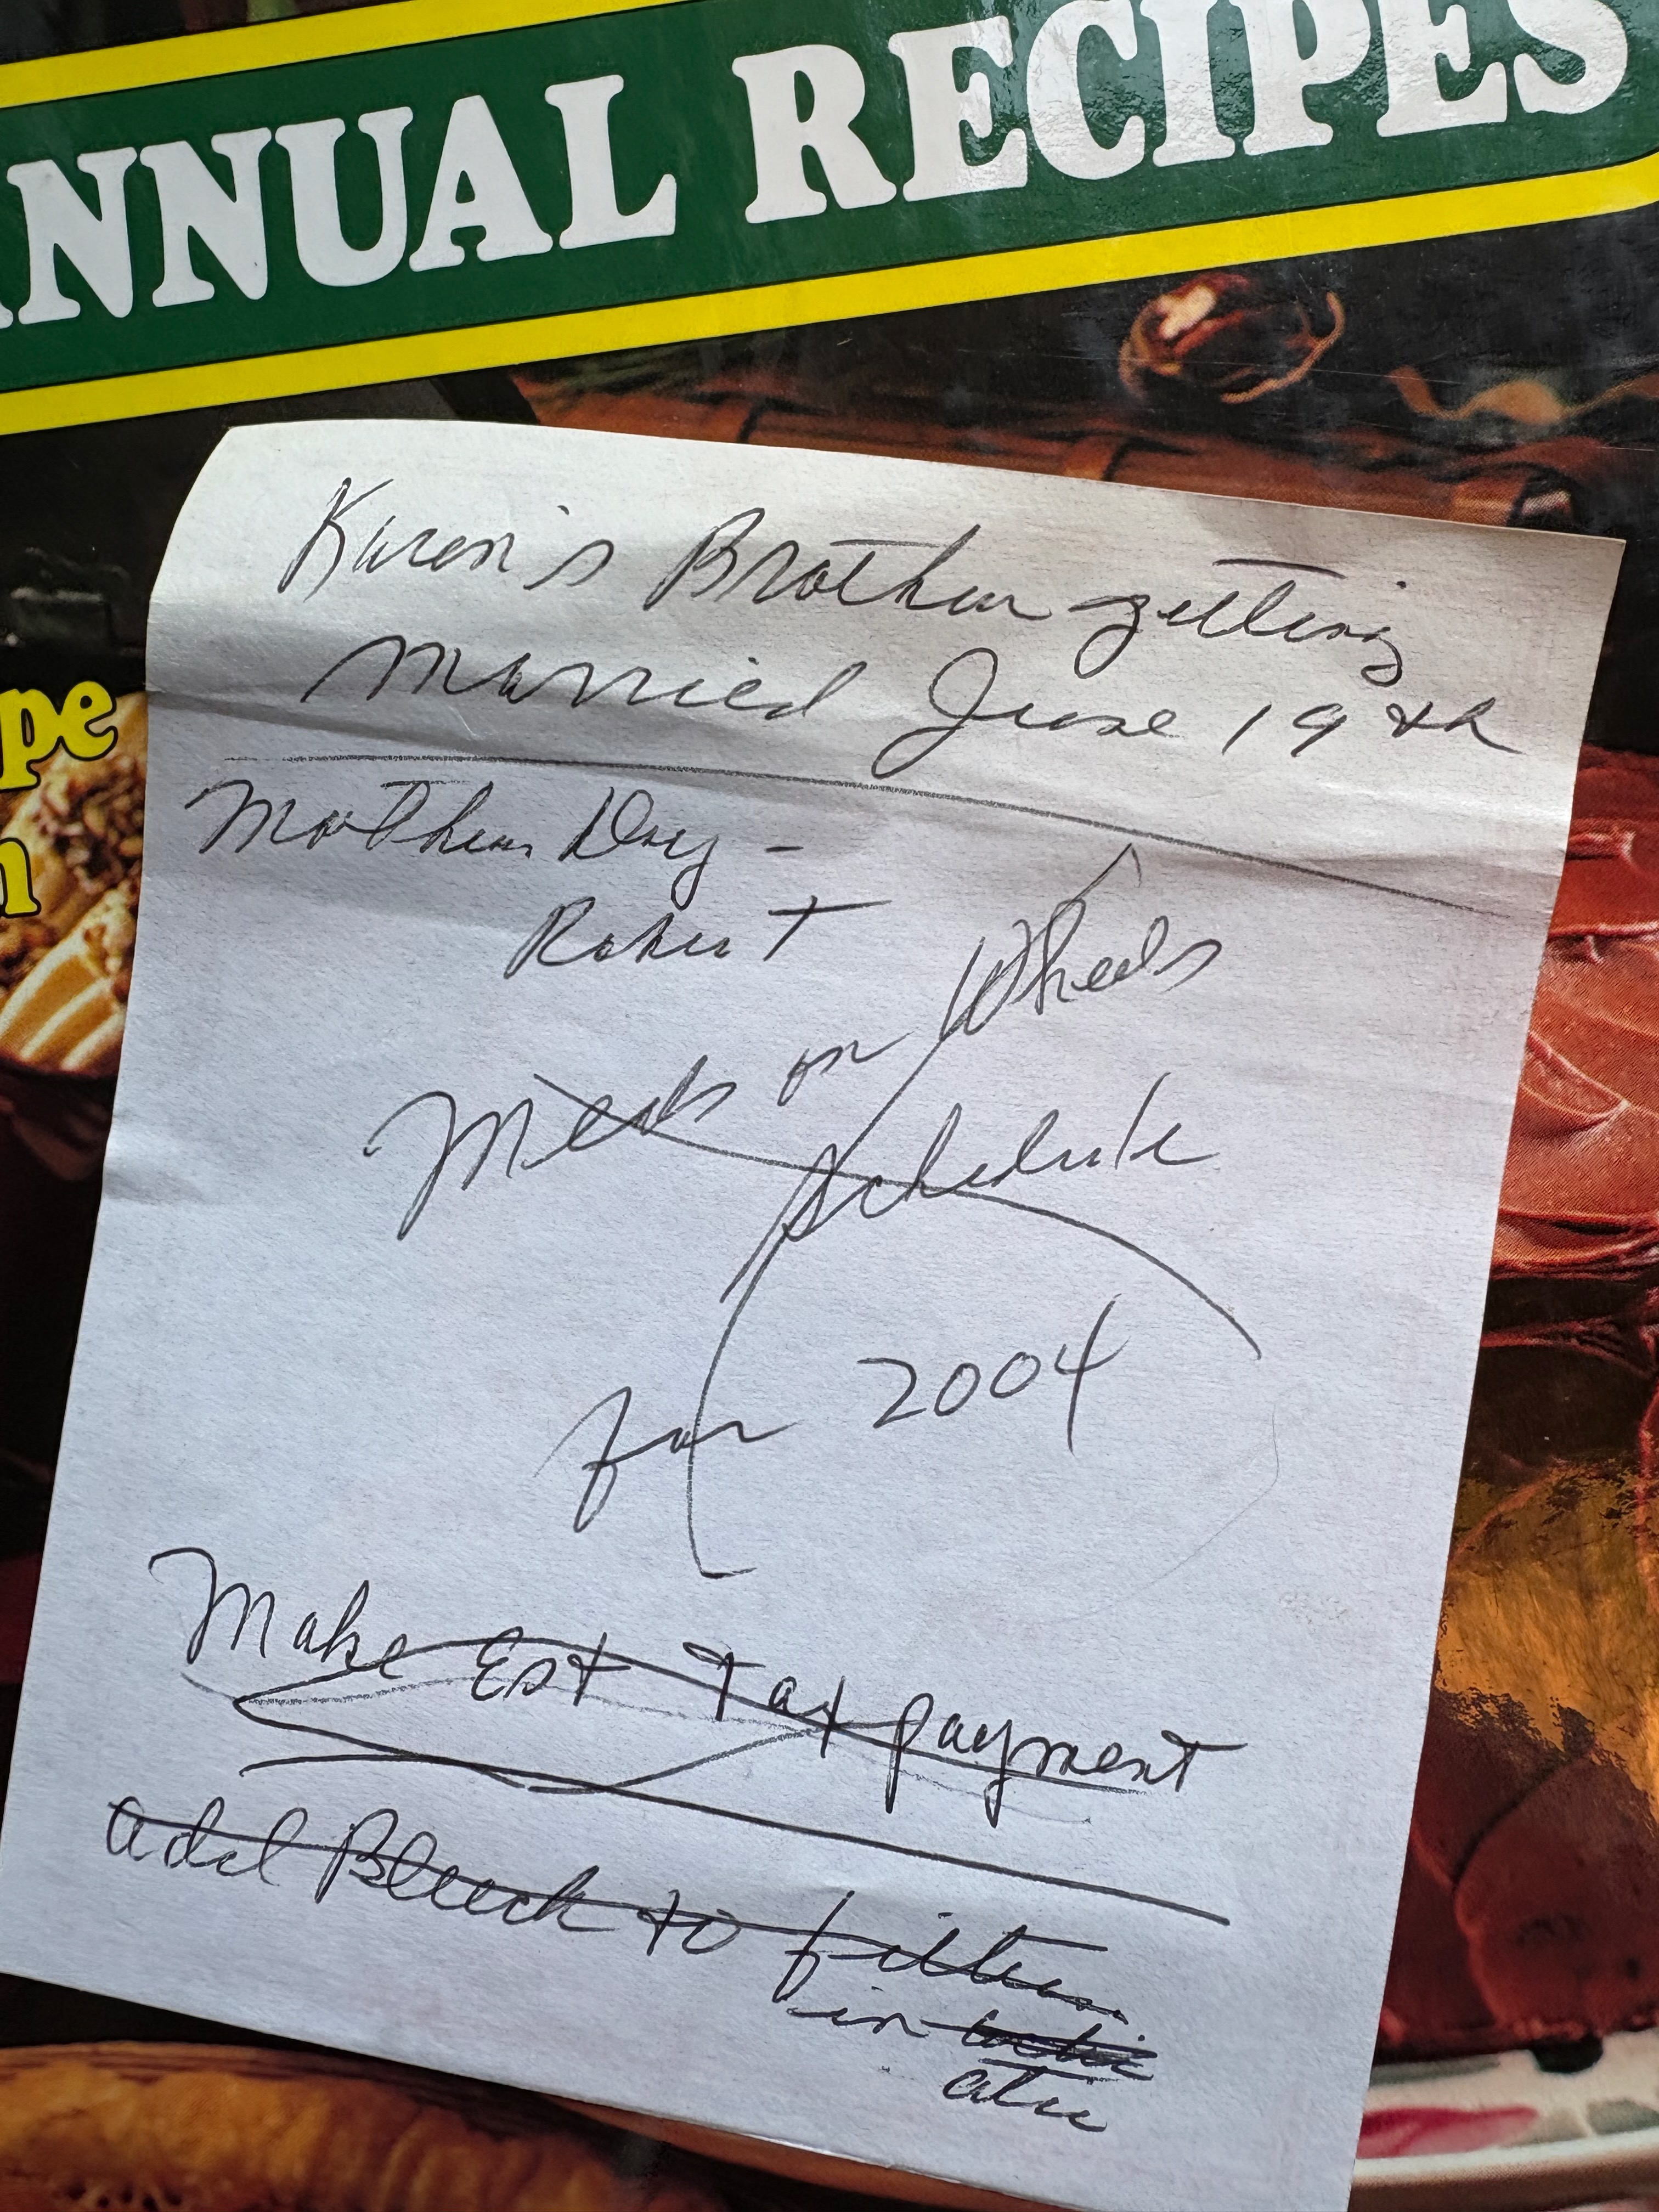 ANNUAL RECIPES
pe
n
Karen's Brother getting
Married June 19th
Mother Day -
Robert
Meals on Wheels
Schedule
for 2004
Make Est Tax payment
add Bleach to filter
in